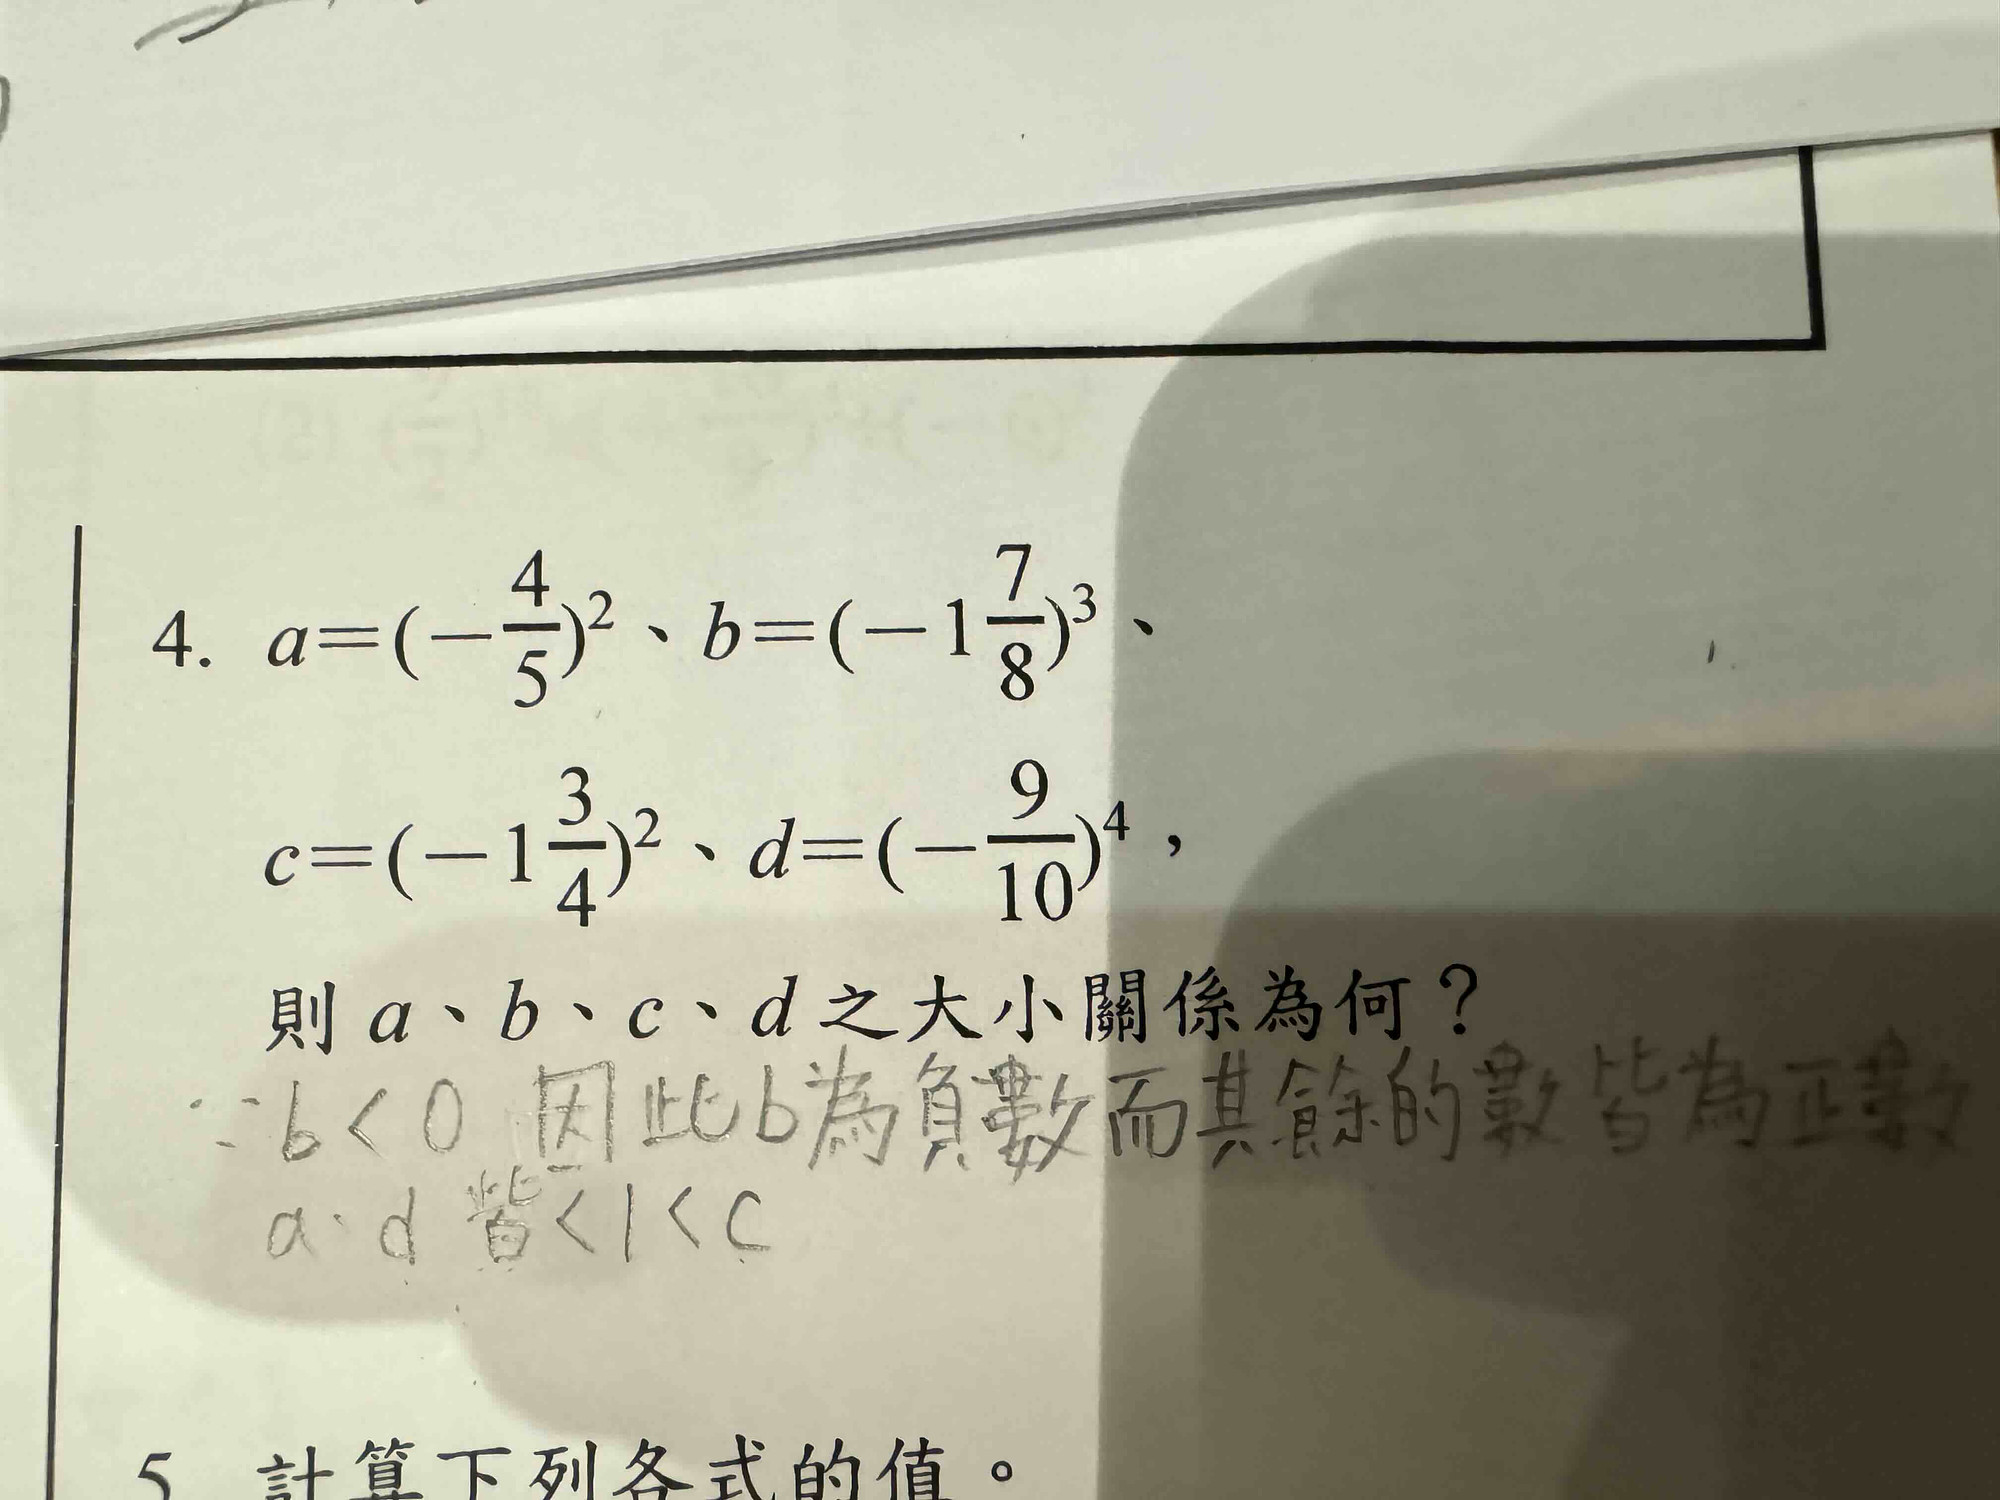 4. a=(-4/5)²、b=(-1 7/8)³、
c=(-1 3/4)²、d=(-9/10)⁴，
則 a、b、c、d 之大小關係為何？
∵b<0 因此b為負數而其餘的數皆為正數
a、d 皆<1<c
5. 計算下列各式的值。